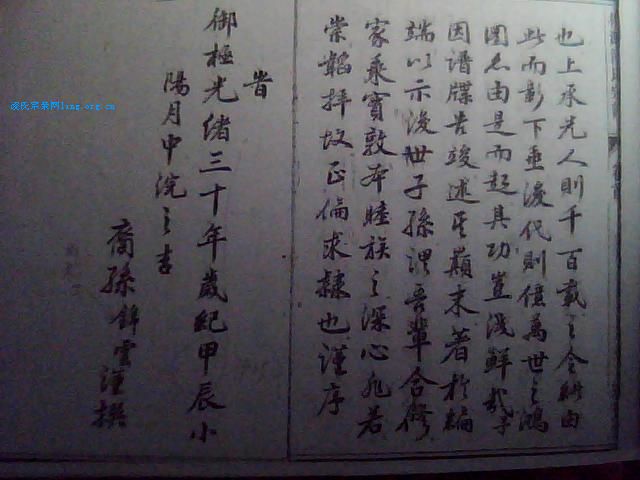 也上承先人則千百載之令緒由
此而彰下垂後代則億萬世之鴻
圖名由是而起其功豈淺鮮哉予
因譜牒告竣述其巔末著於編
端以示後世子孫謂吾輩合修
家乘實敦本睦族之深心非若
崇韜拜墳正倫求隸也謹序
旹
御極光緒三十年歲紀甲辰小
陽月中浣之吉
裔孫錦雲謹撰
凌氏宗亲网ling.org.cn